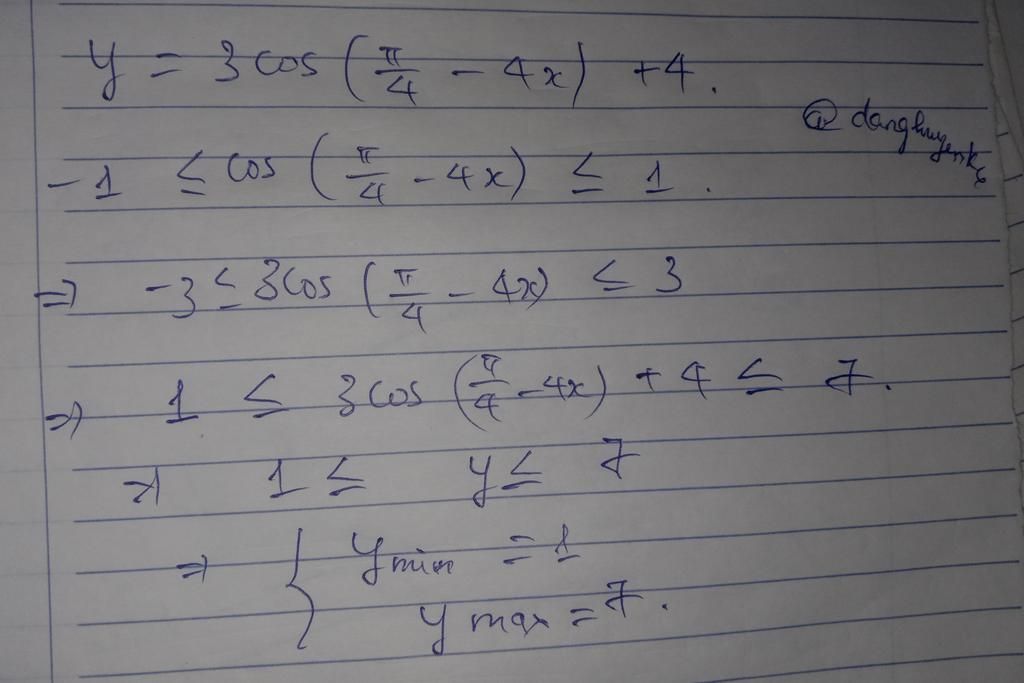 y = 3cos(π/4 - 4x) + 4.
@danghuyenk6
-1 ≤ cos(π/4 - 4x) ≤ 1.
=> -3 ≤ 3cos(π/4 - 4x) ≤ 3
=> 1 ≤ 3cos(π/4 - 4x) + 4 ≤ 7.
=> 1 ≤ y ≤ 7
=> { y min = 1
y max = 7.